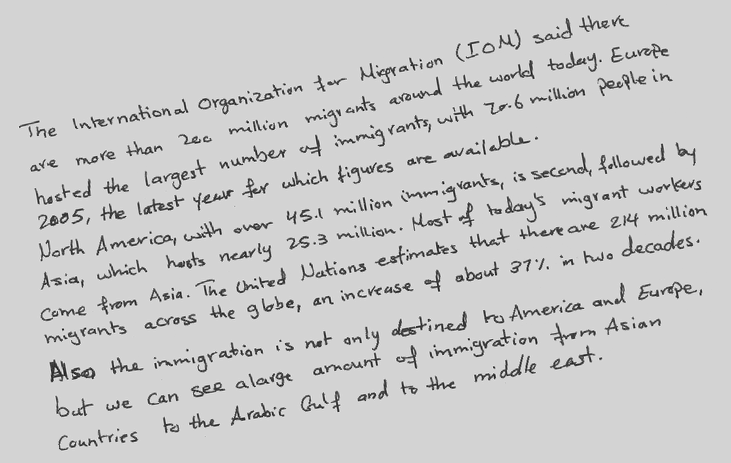 The International Organization for Migration (IOM) said there
are more than 200 million migrants around the world today. Europe
hosted the largest number of immigrants, with 70.6 million people in
2005, the latest year for which figures are available.
North America, with over 45.1 million immigrants, is second, followed by
Asia, which hosts nearly 25.3 million. Most of today's migrant workers
come from Asia. The United Nations estimates that there are 214 million
migrants across the globe, an increase of about 37% in two decades.
Also the immigration is not only destined to America and Europe,
but we can see alarge amount of immigration from Asian
Countries to the Arabic Gulf and to the middle east.